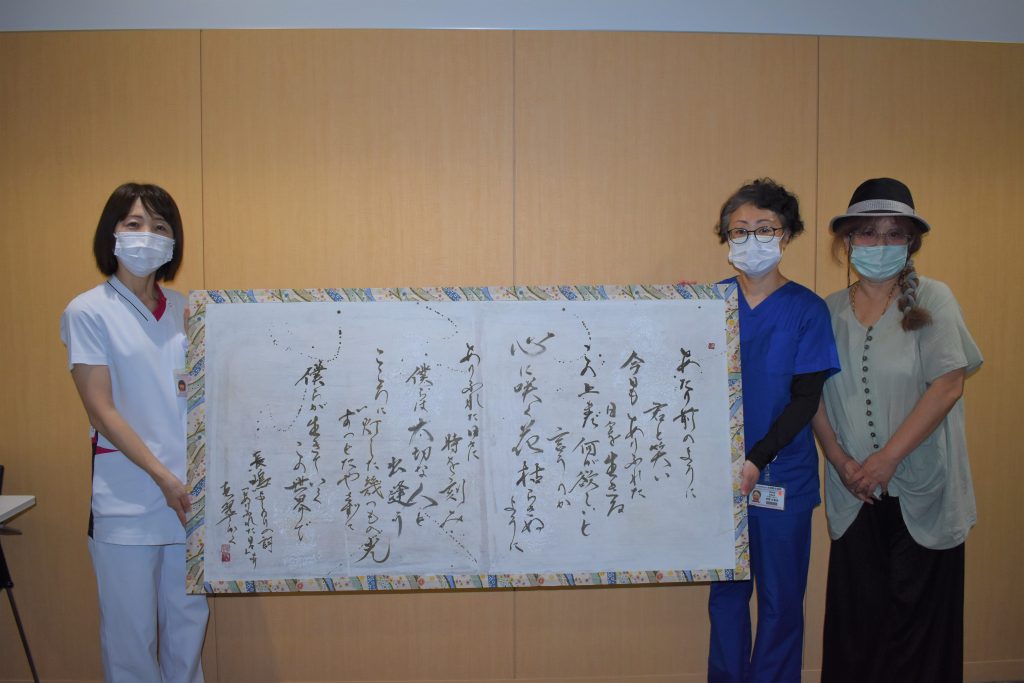 あたり前のように
君と笑い
今日もありふれた
日々を生きてる
この上まだ何が欲しいと
言うのか
心に咲く花枯らさぬ
ように
ありふれた日々に
時を刻み
僕らは大切な人と
出逢う
こころに灯した幾つもの光
ずっとたやさずに
僕らが生きていく
この世界で